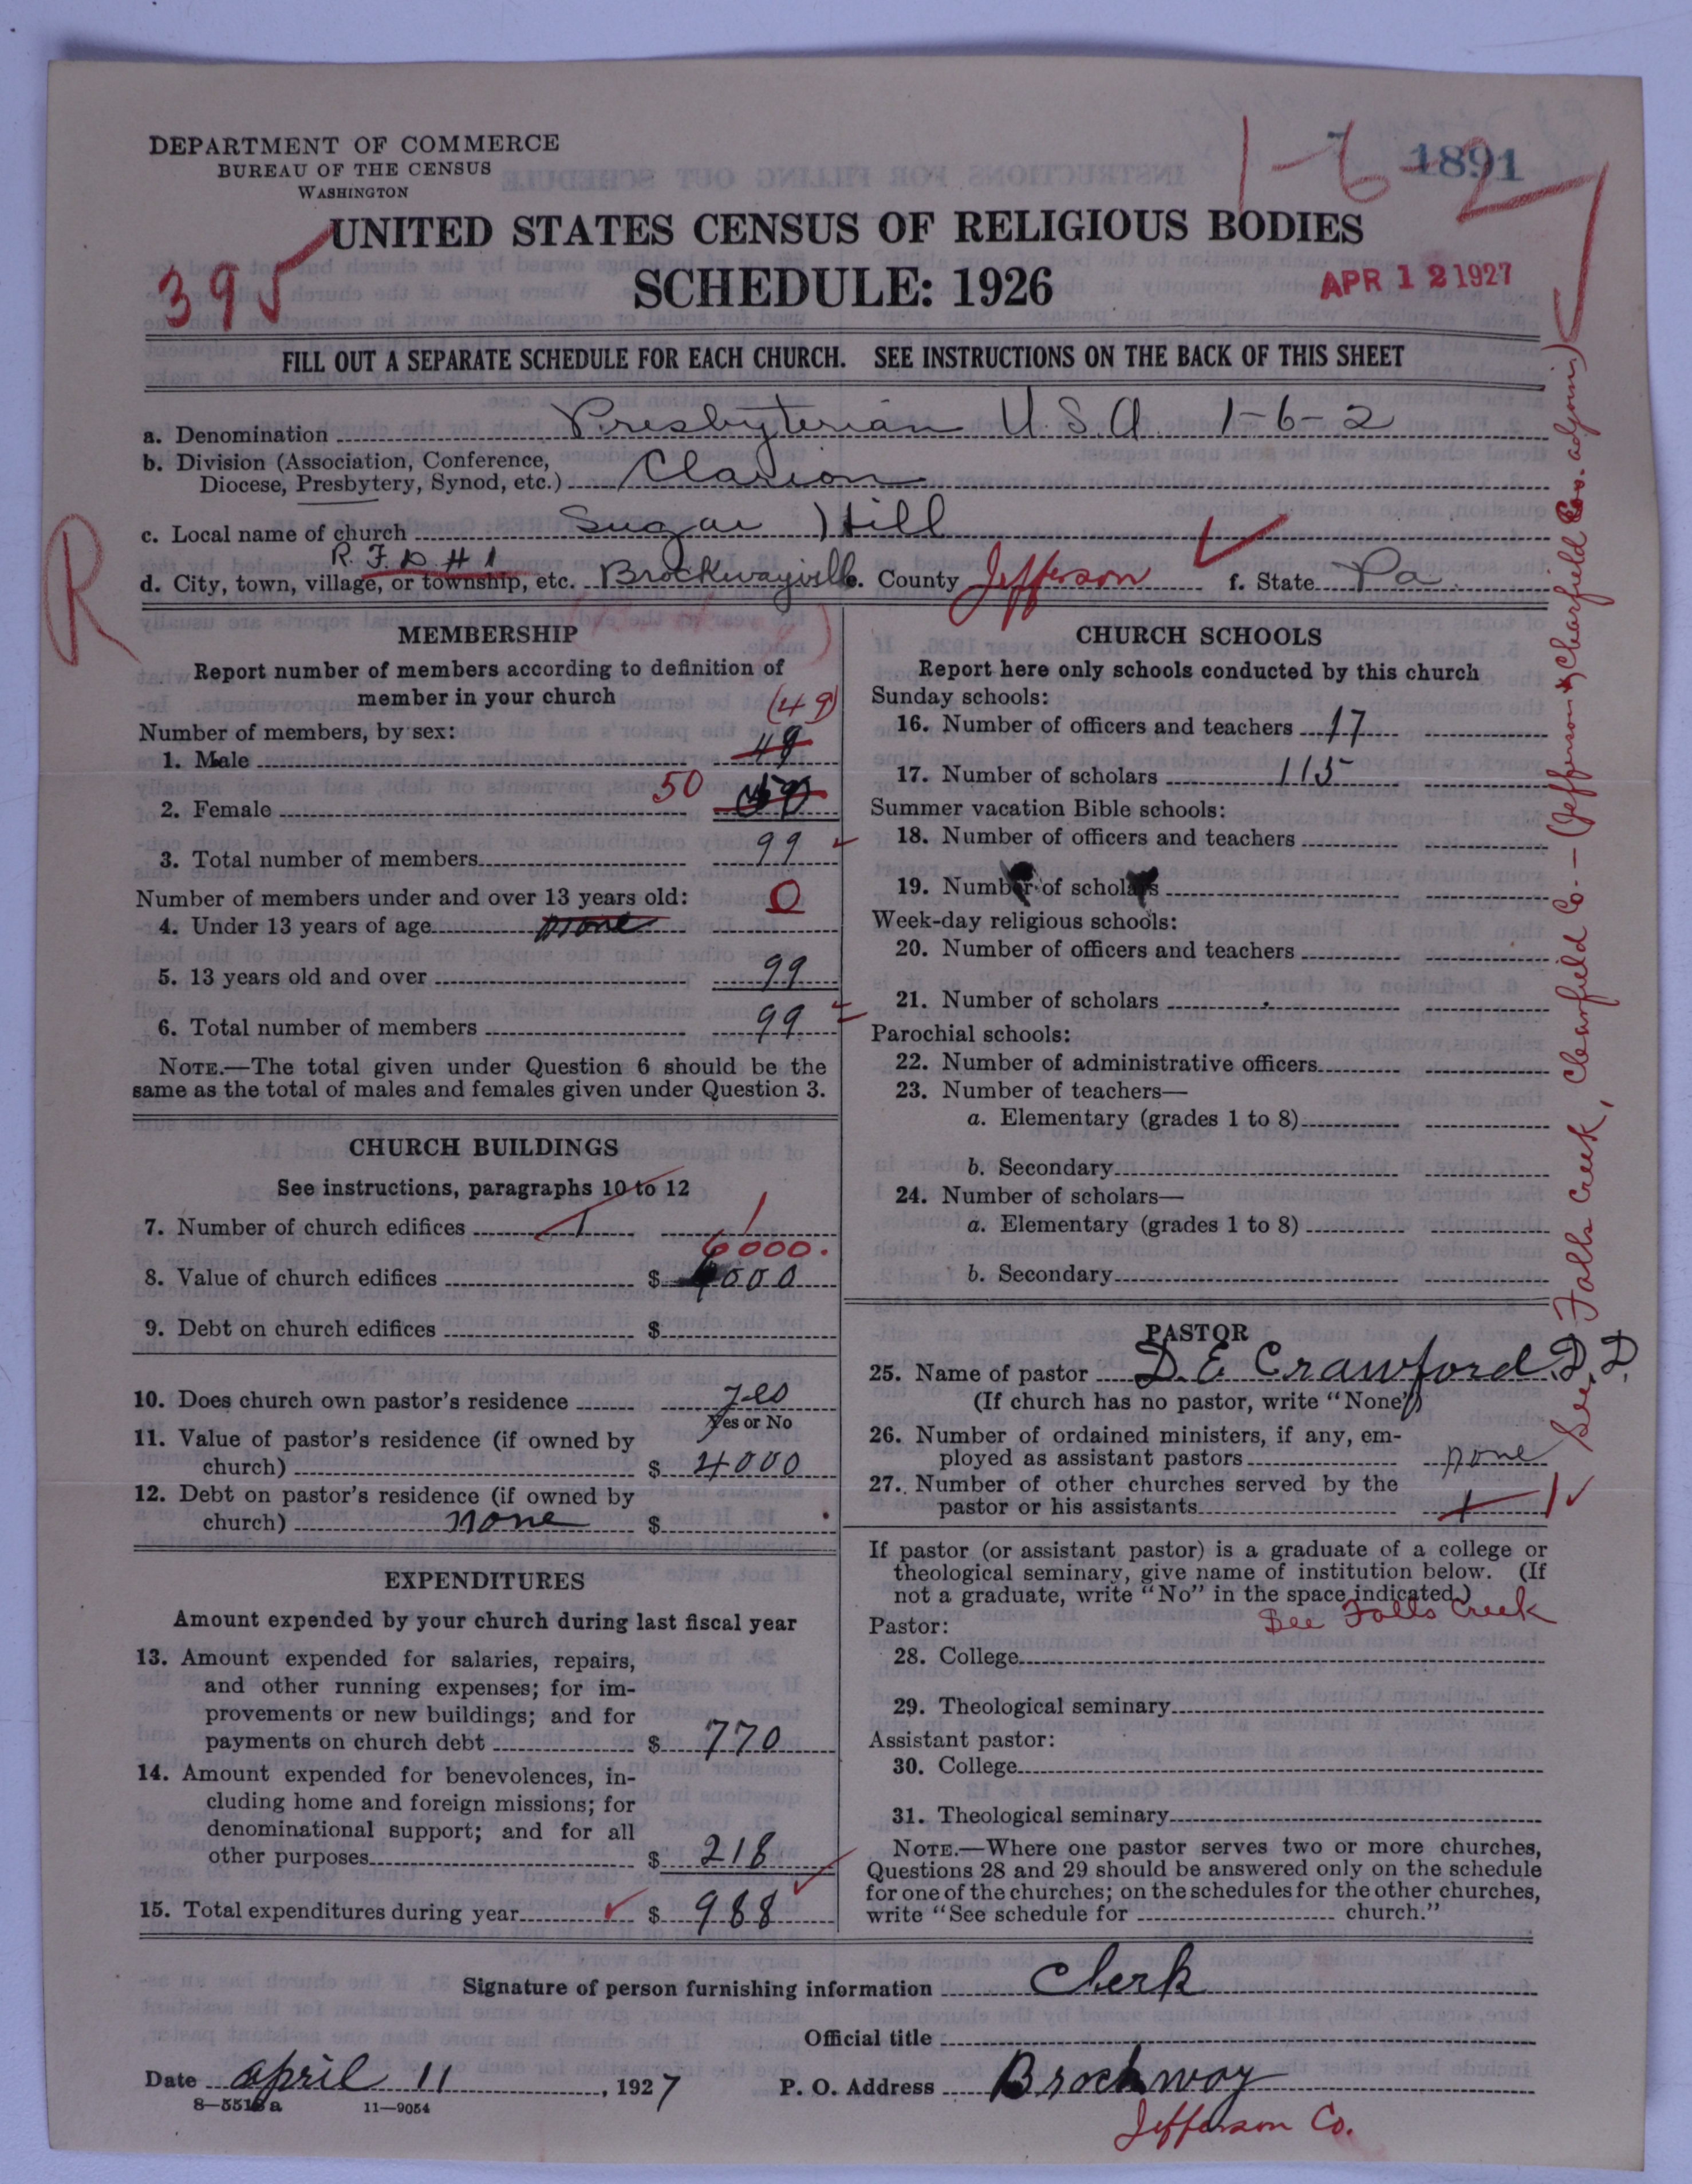 DEPARTMENT OF COMMERCE
BUREAU OF THE CENSUS
WASHINGTON
1-6-2
1891
UNITED STATES CENSUS OF RELIGIOUS BODIES
395
SCHEDULE: 1926
APR 12 1927
FILL OUT A SEPARATE SCHEDULE FOR EACH CHURCH. SEE INSTRUCTIONS ON THE BACK OF THIS SHEET
a. Denomination Presbyterian U.S.A. 1-6-2
b. Division (Association, Conference,
Diocese, Presbytery, Synod, etc.) Clarion
c. Local name of church Sugar Hill
R. F. D # 1
d. City, town, village, or township, etc. Brockwayville e. County Jefferson f. State Pa.
R
MEMBERSHIP
Report number of members according to definition of
member in your church
(49)
Number of members, by sex:
1. Male 49
50
2. Female
3. Total number of members 99
Number of members under and over 13 years old: 0
4. Under 13 years of age none
5. 13 years old and over 99
6. Total number of members 99
NOTE.—The total given under Question 6 should be the
same as the total of males and females given under Question 3.
CHURCH BUILDINGS
See instructions, paragraphs 10 to 12
7. Number of church edifices 1 1
6000.
8. Value of church edifices $ 000
9. Debt on church edifices $
10. Does church own pastor's residence yes
Yes or No
11. Value of pastor's residence (if owned by
church) $ 4000
12. Debt on pastor's residence (if owned by
church) none $
EXPENDITURES
Amount expended by your church during last fiscal year
13. Amount expended for salaries, repairs,
and other running expenses; for im-
provements or new buildings; and for
payments on church debt $ 770
14. Amount expended for benevolences, in-
cluding home and foreign missions; for
denominational support; and for all
other purposes $ 218
15. Total expenditures during year $ 988
CHURCH SCHOOLS
Report here only schools conducted by this church
Sunday schools:
16. Number of officers and teachers 17
17. Number of scholars 115
Summer vacation Bible schools:
18. Number of officers and teachers
19. Number of scholars
Week-day religious schools:
20. Number of officers and teachers
21. Number of scholars
Parochial schools:
22. Number of administrative officers
23. Number of teachers—
a. Elementary (grades 1 to 8)
b. Secondary
24. Number of scholars—
a. Elementary (grades 1 to 8)
b. Secondary
PASTOR
25. Name of pastor D. E. Crawford D. D.
(If church has no pastor, write "None")
26. Number of ordained ministers, if any, em-
ployed as assistant pastors none
27. Number of other churches served by the
pastor or his assistants 1 1
If pastor (or assistant pastor) is a graduate of a college or
theological seminary, give name of institution below. (If
not a graduate, write "No" in the space indicated.)
See Falls Creek
Pastor:
28. College
29. Theological seminary
Assistant pastor:
30. College
31. Theological seminary
NOTE.—Where one pastor serves two or more churches,
Questions 28 and 29 should be answered only on the schedule
for one of the churches; on the schedules for the other churches,
write "See schedule for church."
See Falls Creek, Clearfield Co. – (Jefferson & Clearfield Cos. adjoin)
Signature of person furnishing information Clerk
Official title
Date april 11, 1927 P. O. Address Brockway
8—5518a 11—9054
Jefferson Co.